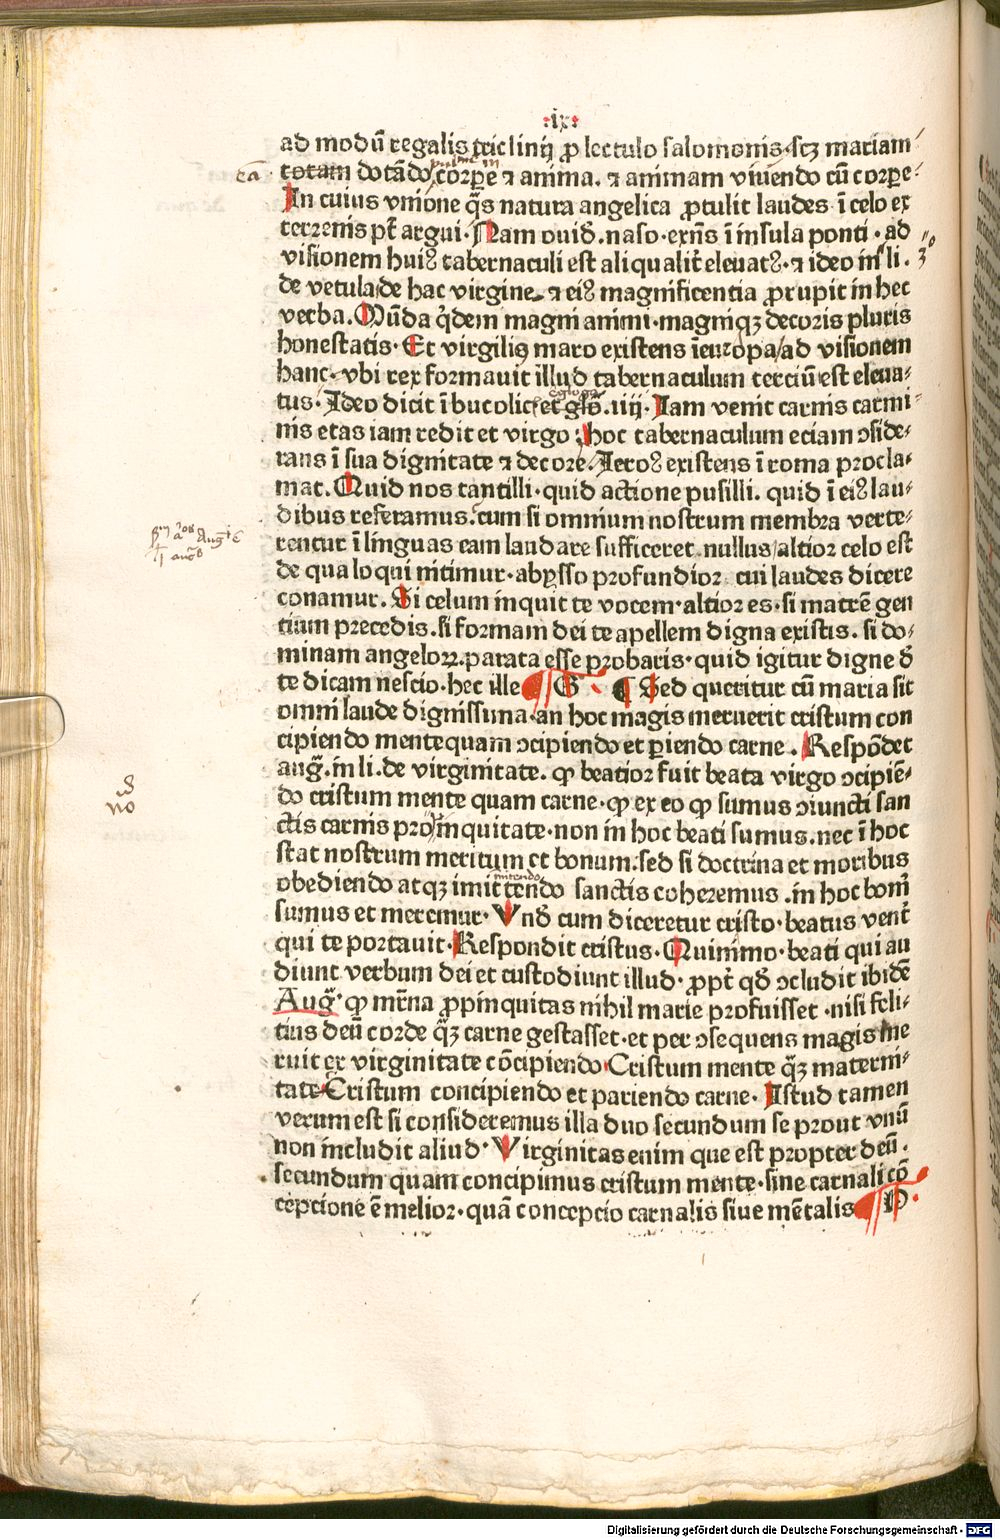 :ix:
ad modū regalis triclinij ꝓ lectulo salomonis·scꝫ mariam
totam dotādo corꝑe ⁊ anima. ⁊ animam viuendo cū corꝑe·
In cuius vnione q̄s natura angelica ꝓtulit laudes ī celo ex
terrenis pt̄ argui·Nam ouid̄.naso·exn̄s ī insula ponti·ad
visionem huiꝰ tabernaculi est aliqualit̄ eleuatꝰ·⁊ ideo in li.
de vetula de hac virgine ⁊ eiꝰ magnificentia ꝓrupit in hec
verba.Mūda q̇dem magni animi·magniqꝫ decoris pluris
honestatis·Et virgiliꝰ maro existens ī europa/ad visionem
hanc·vbi rex formauit illud tabernaculum terciū est eleua⸗
tus·Ideo dicit ī bucolic et glō.iiij.Iam venit carnis carmi⸗
nis etas iam redit et virgo:hoc tabernaculum eciam ↄside⸗
rans ī sua dignitate ⁊ decore.Ieroꝰ existens ī roma procla⸗
mat.Quid nos tantilli·quid actione pusilli. quid ī eiꝰ lau⸗
dibus referamus.cum si omnium nostrum membra verte⸗
rentur ī linguas eam laudare sufficeret nullus/altior celo est
de qua loqui nitimur·abysso profundior cui laudes dicere
conamur.Si celum inquit te vocem·altior es·si matrē gen
tium precedis.si formam dei te apellem digna existis. si do⸗
minam angeloꝝ.parata esse probaris·quid igitur digne ð
te dicam nescio·hec ille ¶ G ¶ Sed queritur cū maria sit
omni laude dignissima·an hoc magis meruerit cristum con
cipiendo mente quam ↄcipiendo et ꝑiendo carne.Respōdet
aug̃.in li.de virginitate.ꝙ beatior fuit beata virgo ↄcipiē⸗
do cristum mente quam carne·ꝙ ex eo ꝙ sumus ↄiuncti san
ctis carnis pro inquitate·non in hoc beati sumus.nec ī hoc
stat nostrum meritum et bonum:sed si doctrina et moribus
obediendo atqꝫ imittendo sanctis coheremus.in hoc boni
sumus et meremur·Vnð cum diceretur cristo·beatus vent̄
qui te portauit·Respondit cristus.Quinimmo·beati qui au
diunt verbum dei et custodiunt illud·ꝓpt̄ qð ↄcludit ibidē
Aug̃·ꝙ mr̄na ꝓpinquitas nihil marie profuisset·nisi feli⸗
tius deū corde q̄ꝫ carne gestasset·et per ↄsequens magis me
ruit ex virginitate cōcipiendo Cristum mente q̄ꝫ materni⸗
tate Cristum concipiendo et pariendo carne.Istud tamen
verum est si consideremus illa duo secundum se prout vnū
non includit aliud·Virginitas enim que est propter deū·
secundum quam concipimus cristum mente·sine carnali cō
cepcione ē melior·quā concepcio carnalis siue mētalis ¶ P
Digitalisierung gefördert durch die Deutsche Forschungsgemeinschaft - DFG